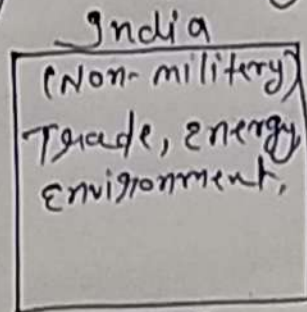 India
(Non-militery)
Trade, energy
Environment,